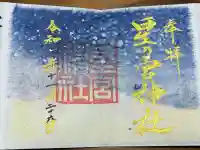 奉拝
星の宮神社
令和二年十一月二十九日